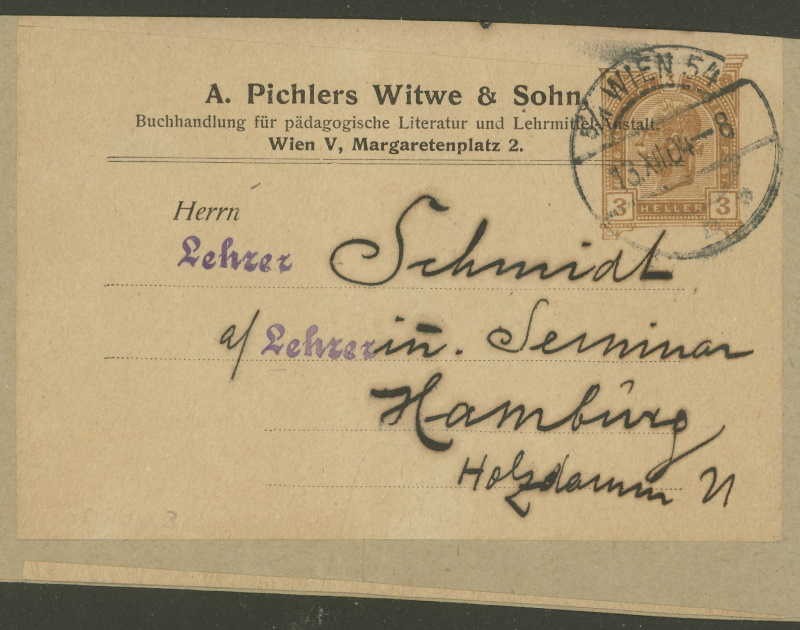 A. Pichlers Witwe & Sohn,
Buchhandlung für pädagogische Literatur und Lehrmittel-Anstalt.
Wien V, Margaretenplatz 2.
WIEN 54
13.XII.04-8
3 HELLER 3
Herrn
Lehrer Schmidt
a/ Lehrerin. Seminar
Hamburg
Holzdamm